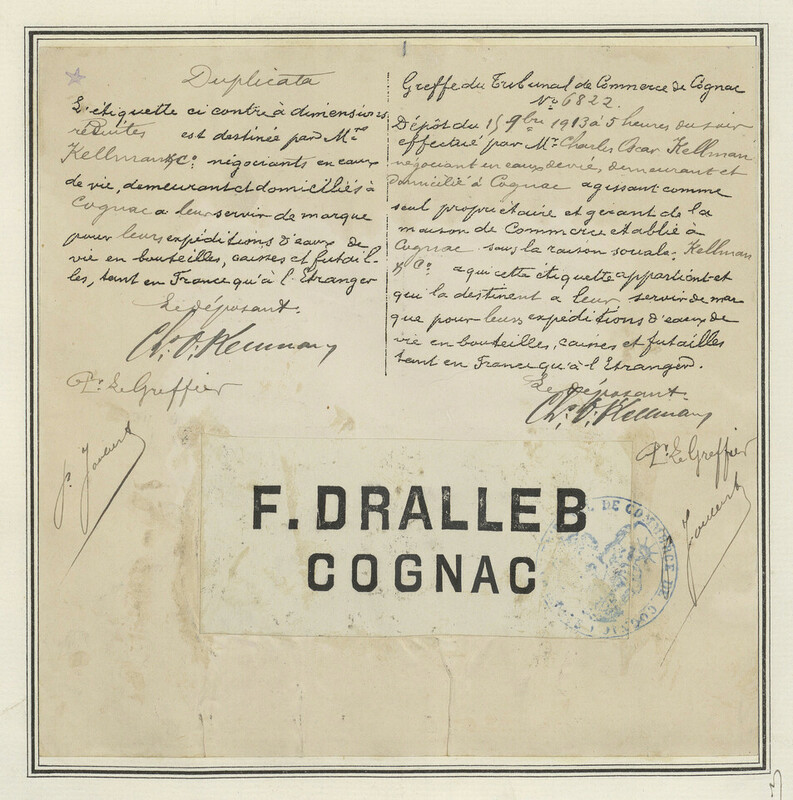 Duplicata
L'étiquette ci contre à dimensions
réduites est destinée par Mrs
Kellman & Co négociants en eaux
de vie, demeurant et domiciliés à
Cognac a leur servir de marque
pour leurs expéditions d'eaux de
vie en bouteilles, caisses et futail-
les, tant en France qu'à l'Etranger
Le déposant.
Ch. O. Kellman
Pr. Le Greffier
Greffe du Tribunal de Commerce de Cognac
No 6822.
Dépôt du 15 9bre 1913 à 5 heures du soir
effectué par Mr Charles Oscar Kellman
négociant en eaux de vie, demeurant et
domicilié à Cognac agissant comme
seul propriétaire et gérant de la
maison de Commerce établie à
Cognac sous la raison sociale. Kellman
& Co a qui cette étiquette appartient et
qui la destinent a leur servir de mar
que pour leurs expéditions d'eaux de
vie en bouteilles, caisses et futailles
tant en France qu'à l'Etranger.
Le déposant.
Ch. O. Kellman
Pr. Le Greffier
F. DRALLEB
COGNAC
DE COMMERCE DE COGNAC